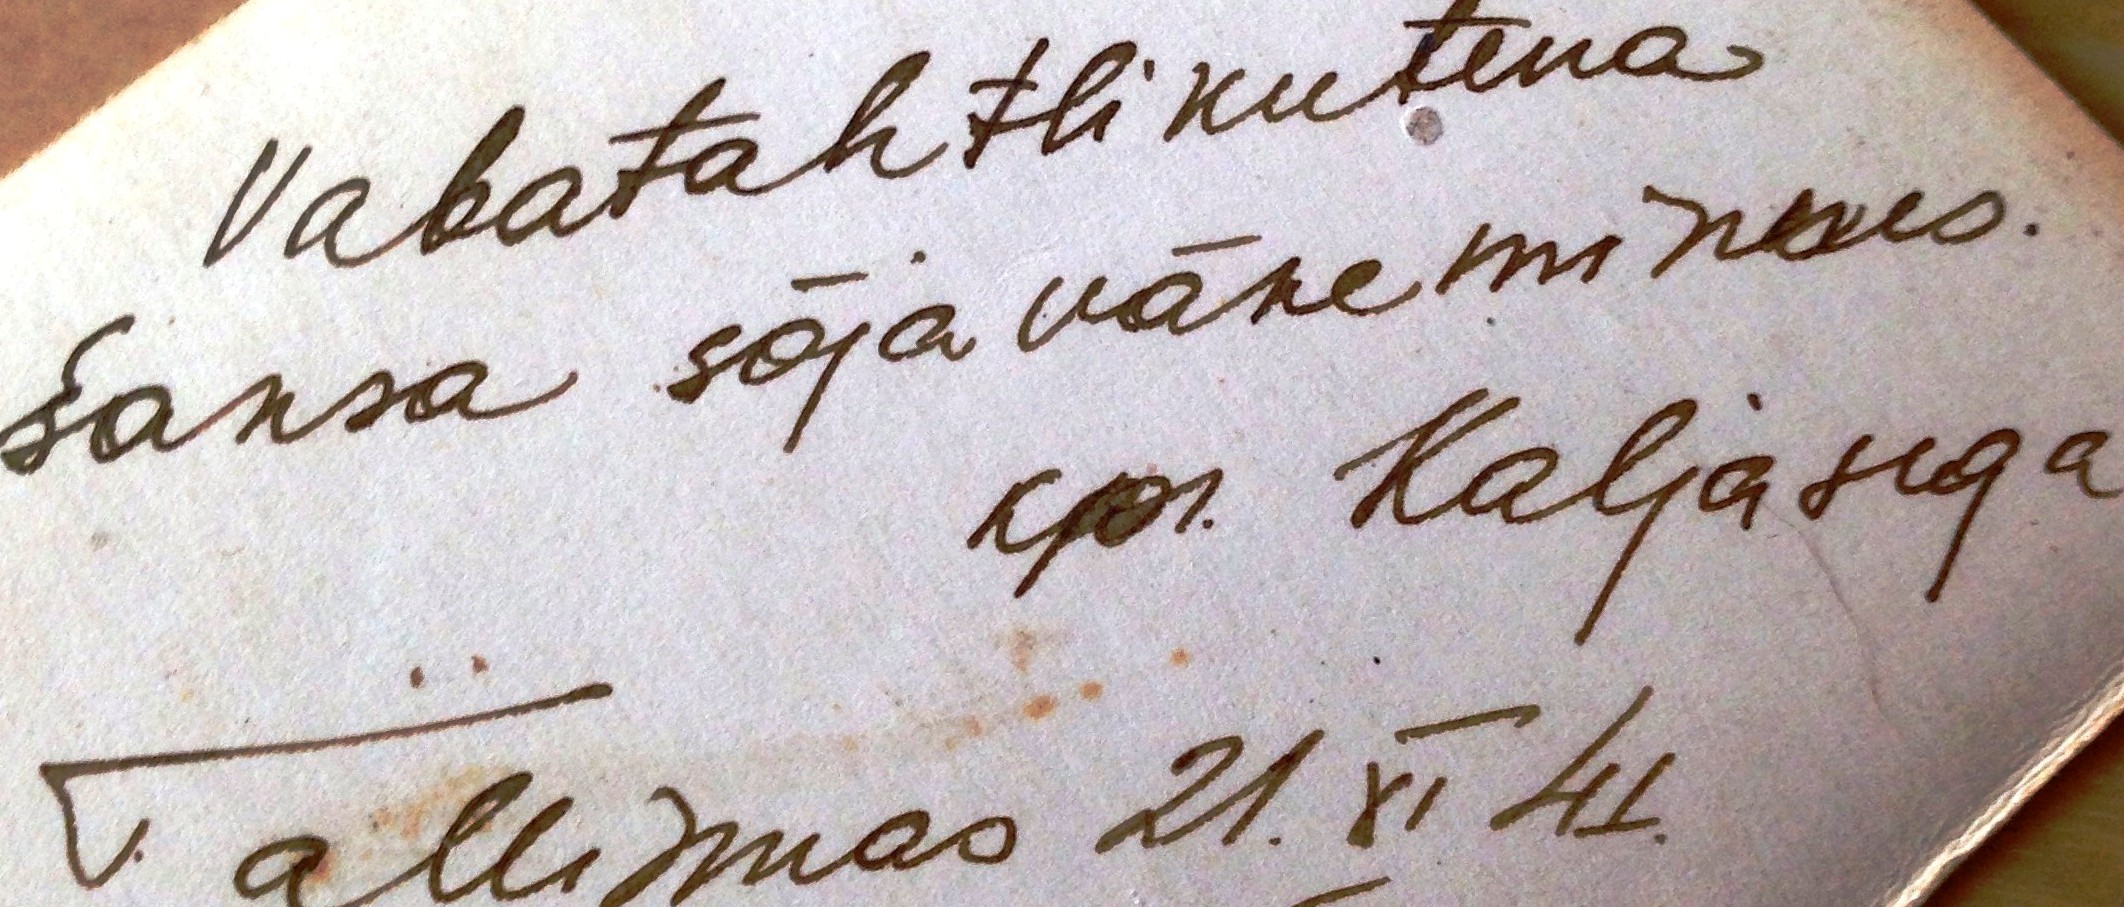 Vabatahtlikutena
Saksa sõjaväke minkus.
kpr. Kaljasuga
Tallinnas 21. XI 41.